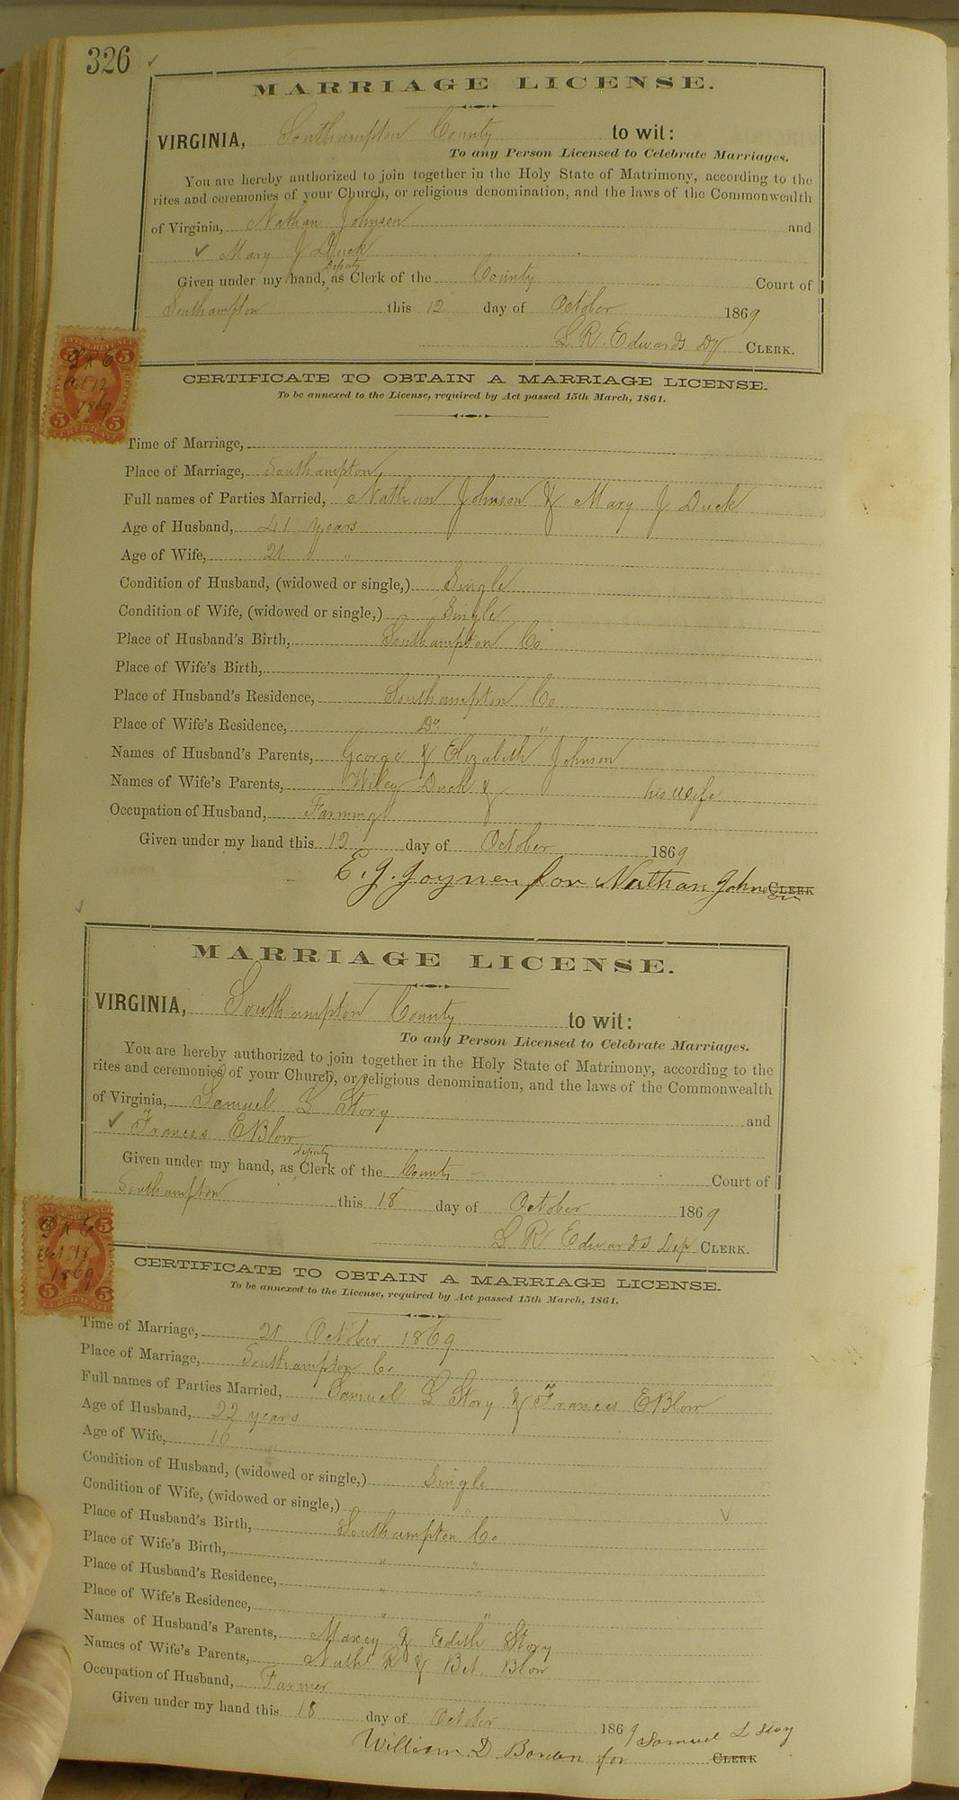 326
MARRIAGE LICENSE.
VIRGINIA, Southampton County to wit:
To any Person Licensed to Celebrate Marriages.
You are hereby authorized to join together in the Holy State of Matrimony, according to the
rites and ceremonies of your Church, or religious denomination, and the laws of the Commonwealth
of Virginia, Nathan Johnson and
✓ Mary J Duck
Deputy
Given under my hand, as Clerk of the County Court of
Southampton this 12 day of October 1869
L. R. Edwards Dy CLERK.
5 5
Oct 12
1869
5 5
CERTIFICATE
CERTIFICATE TO OBTAIN A MARRIAGE LICENSE.
To be annexed to the License, required by Act passed 15th March, 1861.
Time of Marriage,
Place of Marriage, Southampton
Full names of Parties Married, Nathan Johnson & Mary J Duck
Age of Husband, 41 years
Age of Wife, 21 "
Condition of Husband, (widowed or single,) Single
Condition of Wife, (widowed or single,) Single
Place of Husband's Birth, Southampton Co
Place of Wife's Birth,
Place of Husband's Residence, Southampton Co
Place of Wife's Residence, Do "
Names of Husband's Parents, George & Elizabeth Johnson
Names of Wife's Parents, Wiley Duck & his wife
Occupation of Husband, Farming
Given under my hand this 12 day of October 1869
E. J. Joyner for Nathan Johnson CLERK
MARRIAGE LICENSE.
VIRGINIA, Southampton County to wit:
To any Person Licensed to Celebrate Marriages.
You are hereby authorized to join together in the Holy State of Matrimony, according to the
rites and ceremonies of your Church, or religious denomination, and the laws of the Commonwealth
of Virginia, Samuel L Story and
✓ Frances E Blow
deputy
Given under my hand, as Clerk of the County Court of
Southampton this 18 day of October 1869
L R Edwards Dep CLERK.
5 5
Oct 18
1869
5 5
CERTIFICATE
CERTIFICATE TO OBTAIN A MARRIAGE LICENSE.
To be annexed to the License, required by Act passed 15th March, 1861.
Time of Marriage, 21 October 1869
Place of Marriage, Southampton Co
Full names of Parties Married, Samuel L Story & Frances E Blow
Age of Husband, 22 years
Age of Wife, 16
Condition of Husband, (widowed or single,) Single
Condition of Wife, (widowed or single,)
Place of Husband's Birth, Southampton Co
Place of Wife's Birth, " "
Place of Husband's Residence, " "
Place of Wife's Residence, " "
Names of Husband's Parents, Maxey & Edith Story
Names of Wife's Parents, Nathl R & Bet Blow
Occupation of Husband, Farmer
Given under my hand this 18 day of October 1869 Samuel L Story
William D Borden for CLERK